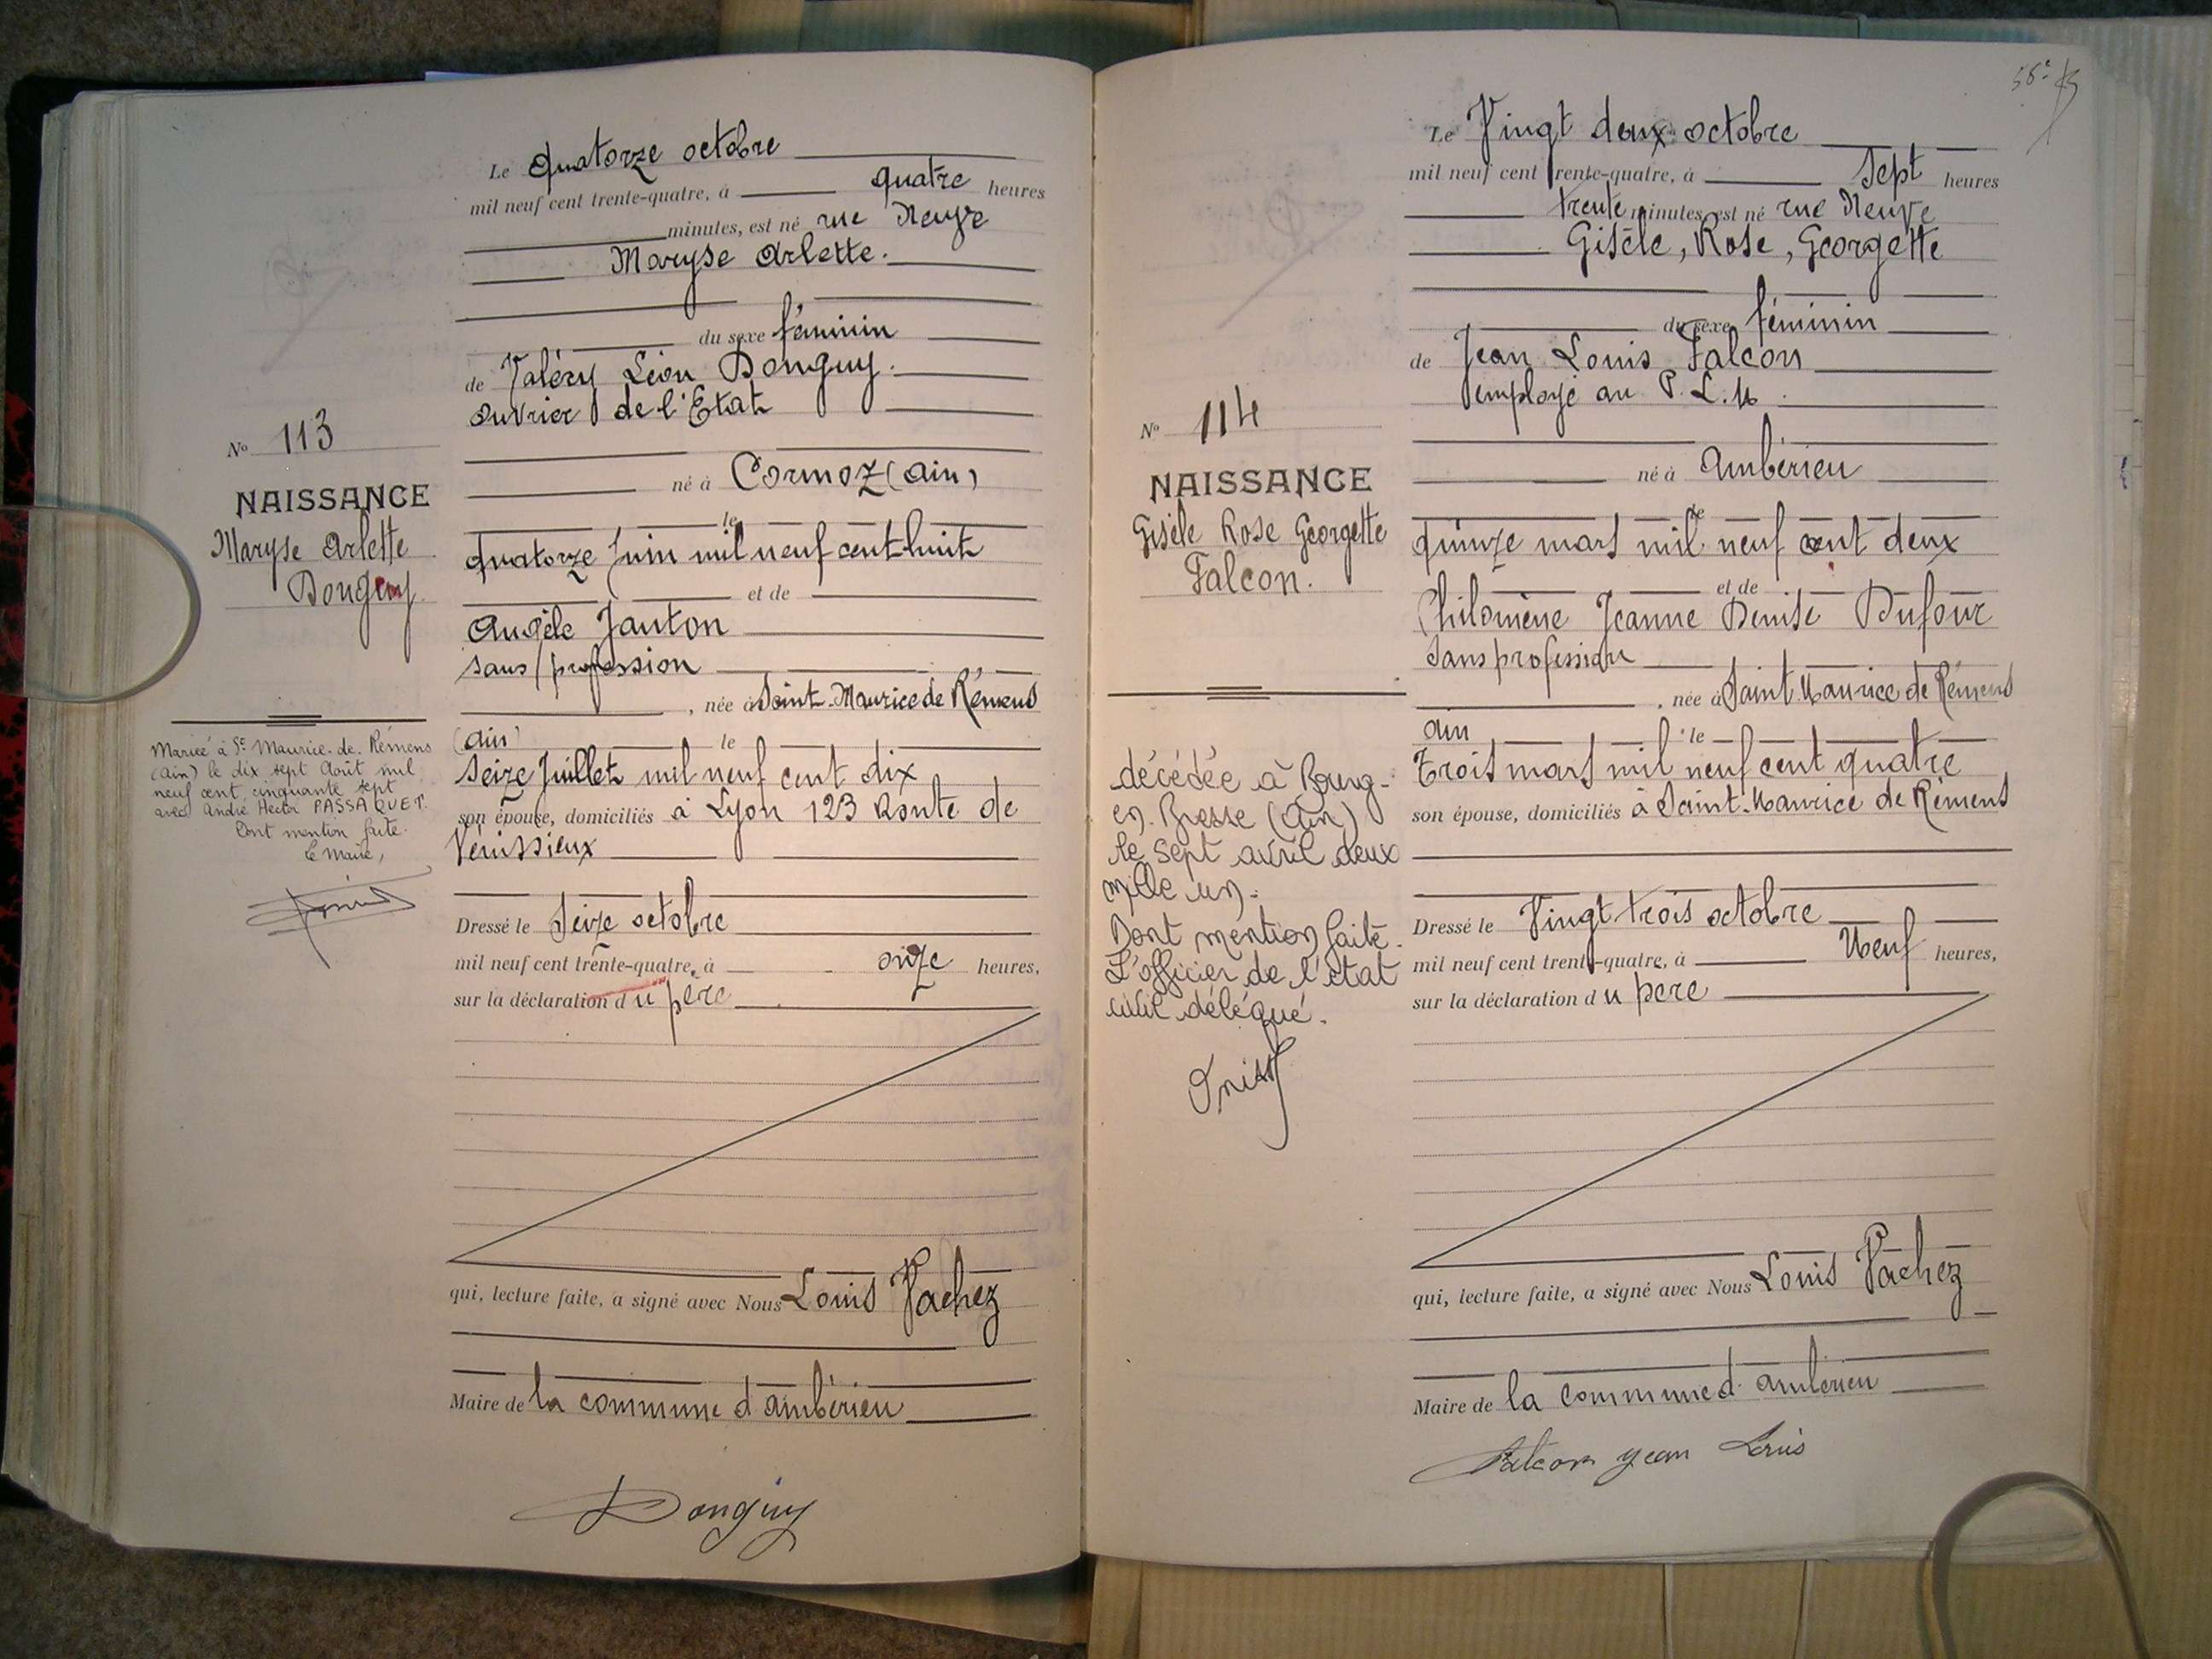 Le quatorze octobre
mil neuf cent trente-quatre, à quatre heures
minutes, est né rue Neuve
Maryse Arlette.
du sexe féminin
de Valéry Léon Donguy.
ouvrier de l'Etat
né à Cormoz (Ain)
le
quatorze Juin mil neuf cent huit
et de
Angèle Janton
sans profession
, née à Saint-Maurice de Rémens
(Ain) le
seize Juillet mil neuf cent dix
son épouse, domiciliés à Lyon 123 Route de
Vénissieux
Dressé le Seize octobre
mil neuf cent trente-quatre, à onze heures,
sur la déclaration du père
qui, lecture faite, a signé avec Nous Louis Vachez
Maire de la commune d'ambérieu
Donguy
No 113
NAISSANCE
Maryse Arlette
Donguy
Mariée à St Maurice-de-Rémens
(Ain) le dix sept Août mil
neuf cent cinquante sept
avec André Hector PASSAQUET.
Dont mention faite.
Le Maire,
56e
Le Vingt deux octobre
mil neuf cent trente-quatre, à Sept heures
trente minutes, est né rue Neuve
Gisèle, Rose, Georgette
du sexe féminin
de Jean Louis Falcon
employé au P.L.M.
né à Ambérieu
le
quinze mars mil neuf cent deux
et de
Philomène Jeanne Denise Dufour
Sans profession
, née à Saint-Maurice de Rémens
Ain le
Trois mars mil neuf cent quatre
son épouse, domiciliés à Saint-Maurice de Rémens
Dressé le Vingt trois octobre
mil neuf cent trente-quatre, à Neuf heures,
sur la déclaration du père
qui, lecture faite, a signé avec Nous Louis Vachez
Maire de la commune d'ambérieu
Falcon Jean Louis
No 114
NAISSANCE
Gisèle Rose Georgette
Falcon.
décédée à Bourg-
en-Bresse (Ain)
le sept avril deux
mille un.
Dont mention faite.
L'officier de l'état
civil délégué.